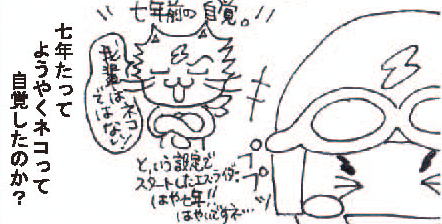 七年前の自覚。!!
俺はネコ
ではない!
という設定で
スタートしたエスライダー
はや七年!!
はやいですネ…
プ
プ
七年たって
ようやくネコって
自覚したのか?